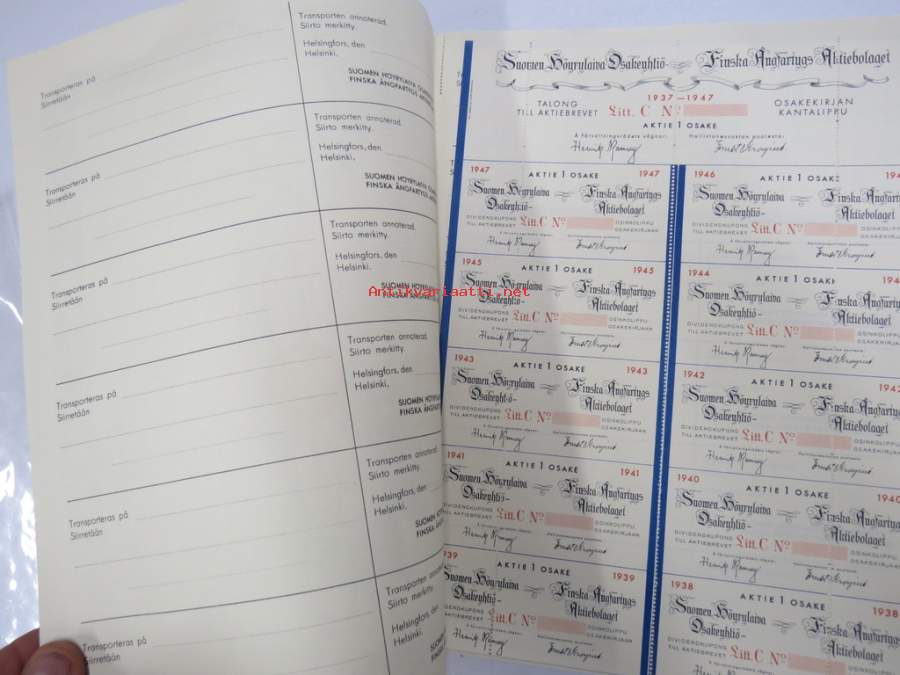 Transporteras på
Siirretään
Transporten annoterad.
Siirto merkitty.
Helsingfors, den
Helsinki,
SUOMEN HÖYRYLAIVA
FINSKA ÅNGFARTYGS
Transporteras på
Siirretään
Transporten annoterad.
Siirto merkitty.
Helsingfors, den
Helsinki,
SUOMEN HÖYRYLAIVA
FINSKA ÅNGFARTYGS
Transporteras på
Siirretään
Transporten annoterad.
Siirto merkitty.
Helsingfors, den
Helsinki,
Transporteras på
Siirretään
Transporten annoterad.
Siirto merkitty.
Helsingfors, den
Helsinki,
SUOMEN
FINSKA
Transporteras på
Siirretään
Transporten annoterad
Siirto merkitty.
Helsingfors, den
Helsinki,
SUOMEN
FINSKA
Transporteras på
Siirretään
Transporten
Siirto merkitty.
Helsingfors,
Helsinki,
Antikvariaatti.net
Suomen Höyrylaiva Osakeyhtiö - Finska Ångfartygs Aktiebolaget
1937-1947
TALONG
TILL AKTIEBREVET
Litt. C No
OSAKEKIRJAN
KANTALIPPU
AKTIE 1 OSAKE
1947 AKTIE 1 OSAKE 1947
Suomen Höyrylaiva Osakeyhtiö- Finska Ångfartygs Aktiebolaget
DIVIDENDKUPONG
TILL AKTIEBREVET
Litt. C No
OSINKOLIPPU
OSAKEKIRJAN
1946 AKTIE 1 OSAKE
Suomen Höyrylaiva Osakeyhtiö- Finska Ångfartygs Aktiebolaget
DIVIDENDKUPONG
TILL AKTIEBREVET
Litt. C No
OSINKOLIPPU
OSAKEKIRJAN
1945 AKTIE 1 OSAKE 1945
Suomen Höyrylaiva Osakeyhtiö- Finska Ångfartygs Aktiebolaget
DIVIDENDKUPONG
TILL AKTIEBREVET
Litt. C No
OSINKOLIPPU
OSAKEKIRJAN
1944 AKTIE 1 OSAKE
Suomen Höyrylaiva Osakeyhtiö- Finska Ångfartygs Aktiebolaget
DIVIDENDKUPONG
TILL AKTIEBREVET
Litt. C No
OSINKOLIPPU
OSAKEKIRJAN
1943 AKTIE 1 OSAKE 1943
Suomen Höyrylaiva Osakeyhtiö- Finska Ångfartygs Aktiebolaget
DIVIDENDKUPONG
TILL AKTIEBREVET
Litt. C No
OSINKOLIPPU
OSAKEKIRJAN
1942 AKTIE 1 OSAKE 1942
Suomen Höyrylaiva Osakeyhtiö- Finska Ångfartygs Aktiebolaget
DIVIDENDKUPONG
TILL AKTIEBREVET
Litt. C No
OSINKOLIPPU
OSAKEKIRJAN
1941 AKTIE 1 OSAKE 1941
Suomen Höyrylaiva Osakeyhtiö- Finska Ångfartygs Aktiebolaget
DIVIDENDKUPONG
TILL AKTIEBREVET
Litt. C No
OSINKOLIPPU
OSAKEKIRJAN
1940 AKTIE 1 OSAKE 1940
Suomen Höyrylaiva Osakeyhtiö- Finska Ångfartygs Aktiebolaget
DIVIDENDKUPONG
TILL AKTIEBREVET
Litt. C No
OSINKOLIPPU
OSAKEKIRJAN
939 AKTIE 1 OSAKE 1939
Suomen Höyrylaiva Osakeyhtiö- Finska Ångfartygs Aktiebolaget
TILL AKTIEBREVET
Litt. C No
OSINKOLIPPU
OSAKEKIRJAN
1938 AKTIE 1 OSAKE 1938
Suomen Höyrylaiva Osakeyhtiö- Finska Ångfartygs Aktiebolaget
DIVIDENDKUPONG
TILL AKTIEBREVET
Litt. C No
OSINKOLIPPU
OSAKEKIRJAN